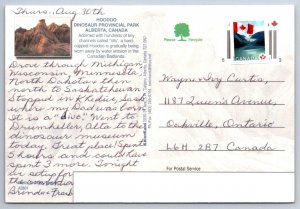 Thurs., Aug 30th
HOODOO
DINOSAUR PROVINCIAL PARK
ALBERTA, CANADA
Adorned with hundreds of tiny
channels called "rills", a hard
capped hoodoo is gradually being
worn away by water erosion in the
Canadian Badlands.
Drove through Michigan,
Wisconsin, Minnesota,
North Dakota, then
north to Saskatchewan
Stopped in
where my Dad was born.
It is a Went to
Drumheller, Alta to the
dinosaur museum
today. Great place! Spent
5 hours and could have
spent 3 more. Tonight
setup for
the convention
Please Recycle
Wayne Ivy Curtis,
1187 Queens Avenue,
Oakville, Ontario
L6H 2B7 Canada
For Postal Service